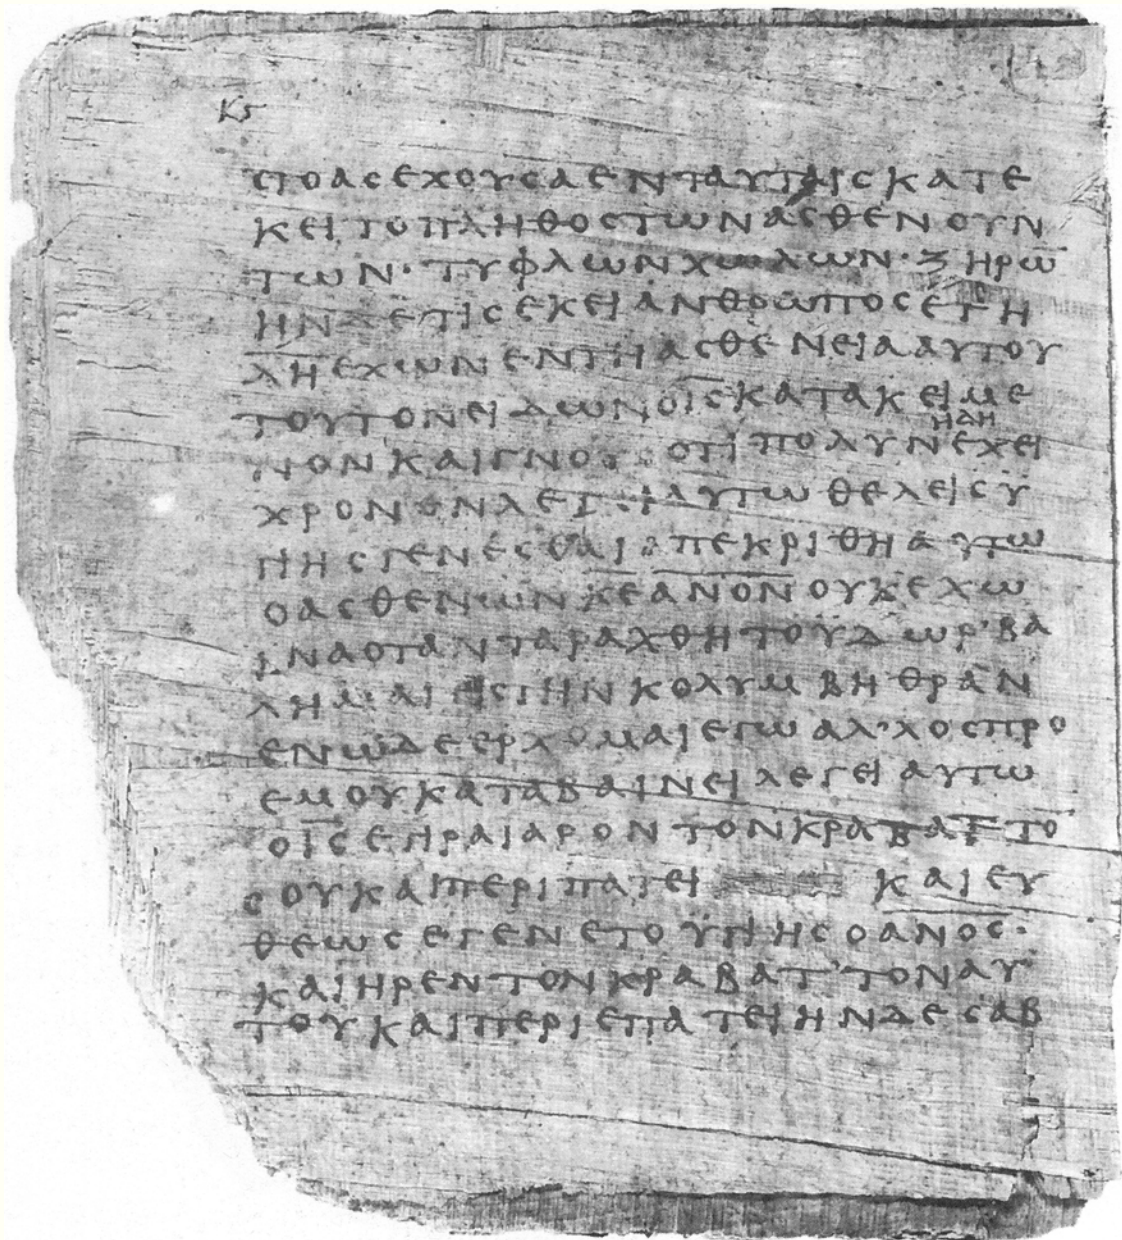 Κϛ
ϹΤΟΑϹΕΧΟΥϹΑΕΝΤΑΥΤΑΙϹΚΑΤΕ
ΚΕΙΤΟΠΛΗΘΟϹΤΩΝΑϹΘΕΝΟΥΝ
ΤΩΝ·ΤΥΦΛΩΝΧΩΛΩΝ·ΞΗΡΩ̅
ΗΝΔΕΤΙϹΕΚΕΙΑΝΘΡΩΠΟϹΕΤΗ
Λ̅Η̅ΕΧΩΝΕΝΤΗΑϹΘΕΝΕΙΑΑΥΤΟΥ
ΤΟΥΤΟΝΕΙΔΩΝΟΙ̅Ϲ̅ΚΑΤΑΚΕΙΜΕ
ΗΔΗ
ΝΟΝΚΑΙΓΝΟΥϹΟΤΙΠΟΛΥΝΕΧΕΙ
ΧΡΟΝΟΝΛΕΓΕΙΑΥΤΩΘΕΛΕΙϹΥ
ΓΙΗϹΓΕΝΕϹΘΑΙΑΠΕΚΡΙΘΗΑΥΤΩ
ΟΑϹΘΕΝΩΝΚ̅Ε̅Α̅Ν̅Ο̅Ν̅ΟΥΚΕΧΩ
ΙΝΑΟΤΑΝΤΑΡΑΧΘΗΤΟΫΔΩΡ'ΒΑ
ΛΗΜΑΙΕΙϹΤΗΝΚΟΛΥΜΒΗΘΡΑΝ
ΕΝΩΔΕΕΡΧΟΜΑΙΕΓΩΑΛ'ΛΟϹΠΡΟ
ΕΜΟΥΚΑΤΑΒΑΙΝΕΙΛΕΓΕΙΑΥΤΩ
ΟΙ̅Ϲ̅ΕΓΙΡΑΙΑΡΟΝΤΟΝΚΡΑΒΑΤΤΟ̅
ϹΟΥΚΑΙΠΕΡΙΠΑΤΕΙ ΚΑΙΕΥ
ΘΕΩϹΕΓΕΝΕΤΟΫΓΙΗϹΟΑ̅Ν̅Ο̅Ϲ̅·
ΚΑΙΗΡΕΝΤΟΝΚΡΑΒΑΤ'ΤΟΝΑΥ
ΤΟΥΚΑΙΠΕΡΙΕΠΑΤΕΙΗΝΔΕϹΑΒ